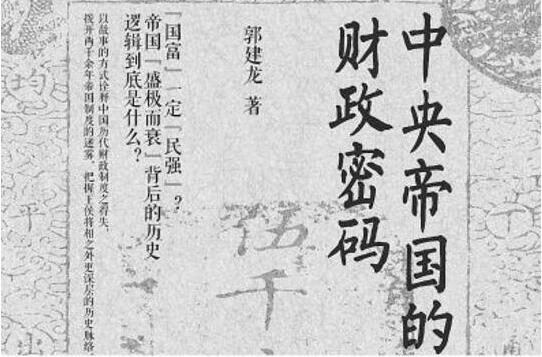 中央帝国的
财政密码
郭建龙 著
“国富”一定“民强”？
帝国“盛极而衰”背后的历史
逻辑到底是什么？
以故事的方式诠释中国历代财政制度之得失，
拨开两千余年帝国制度的迷雾，把握王侯将相之外更深层的历史脉络
伍千